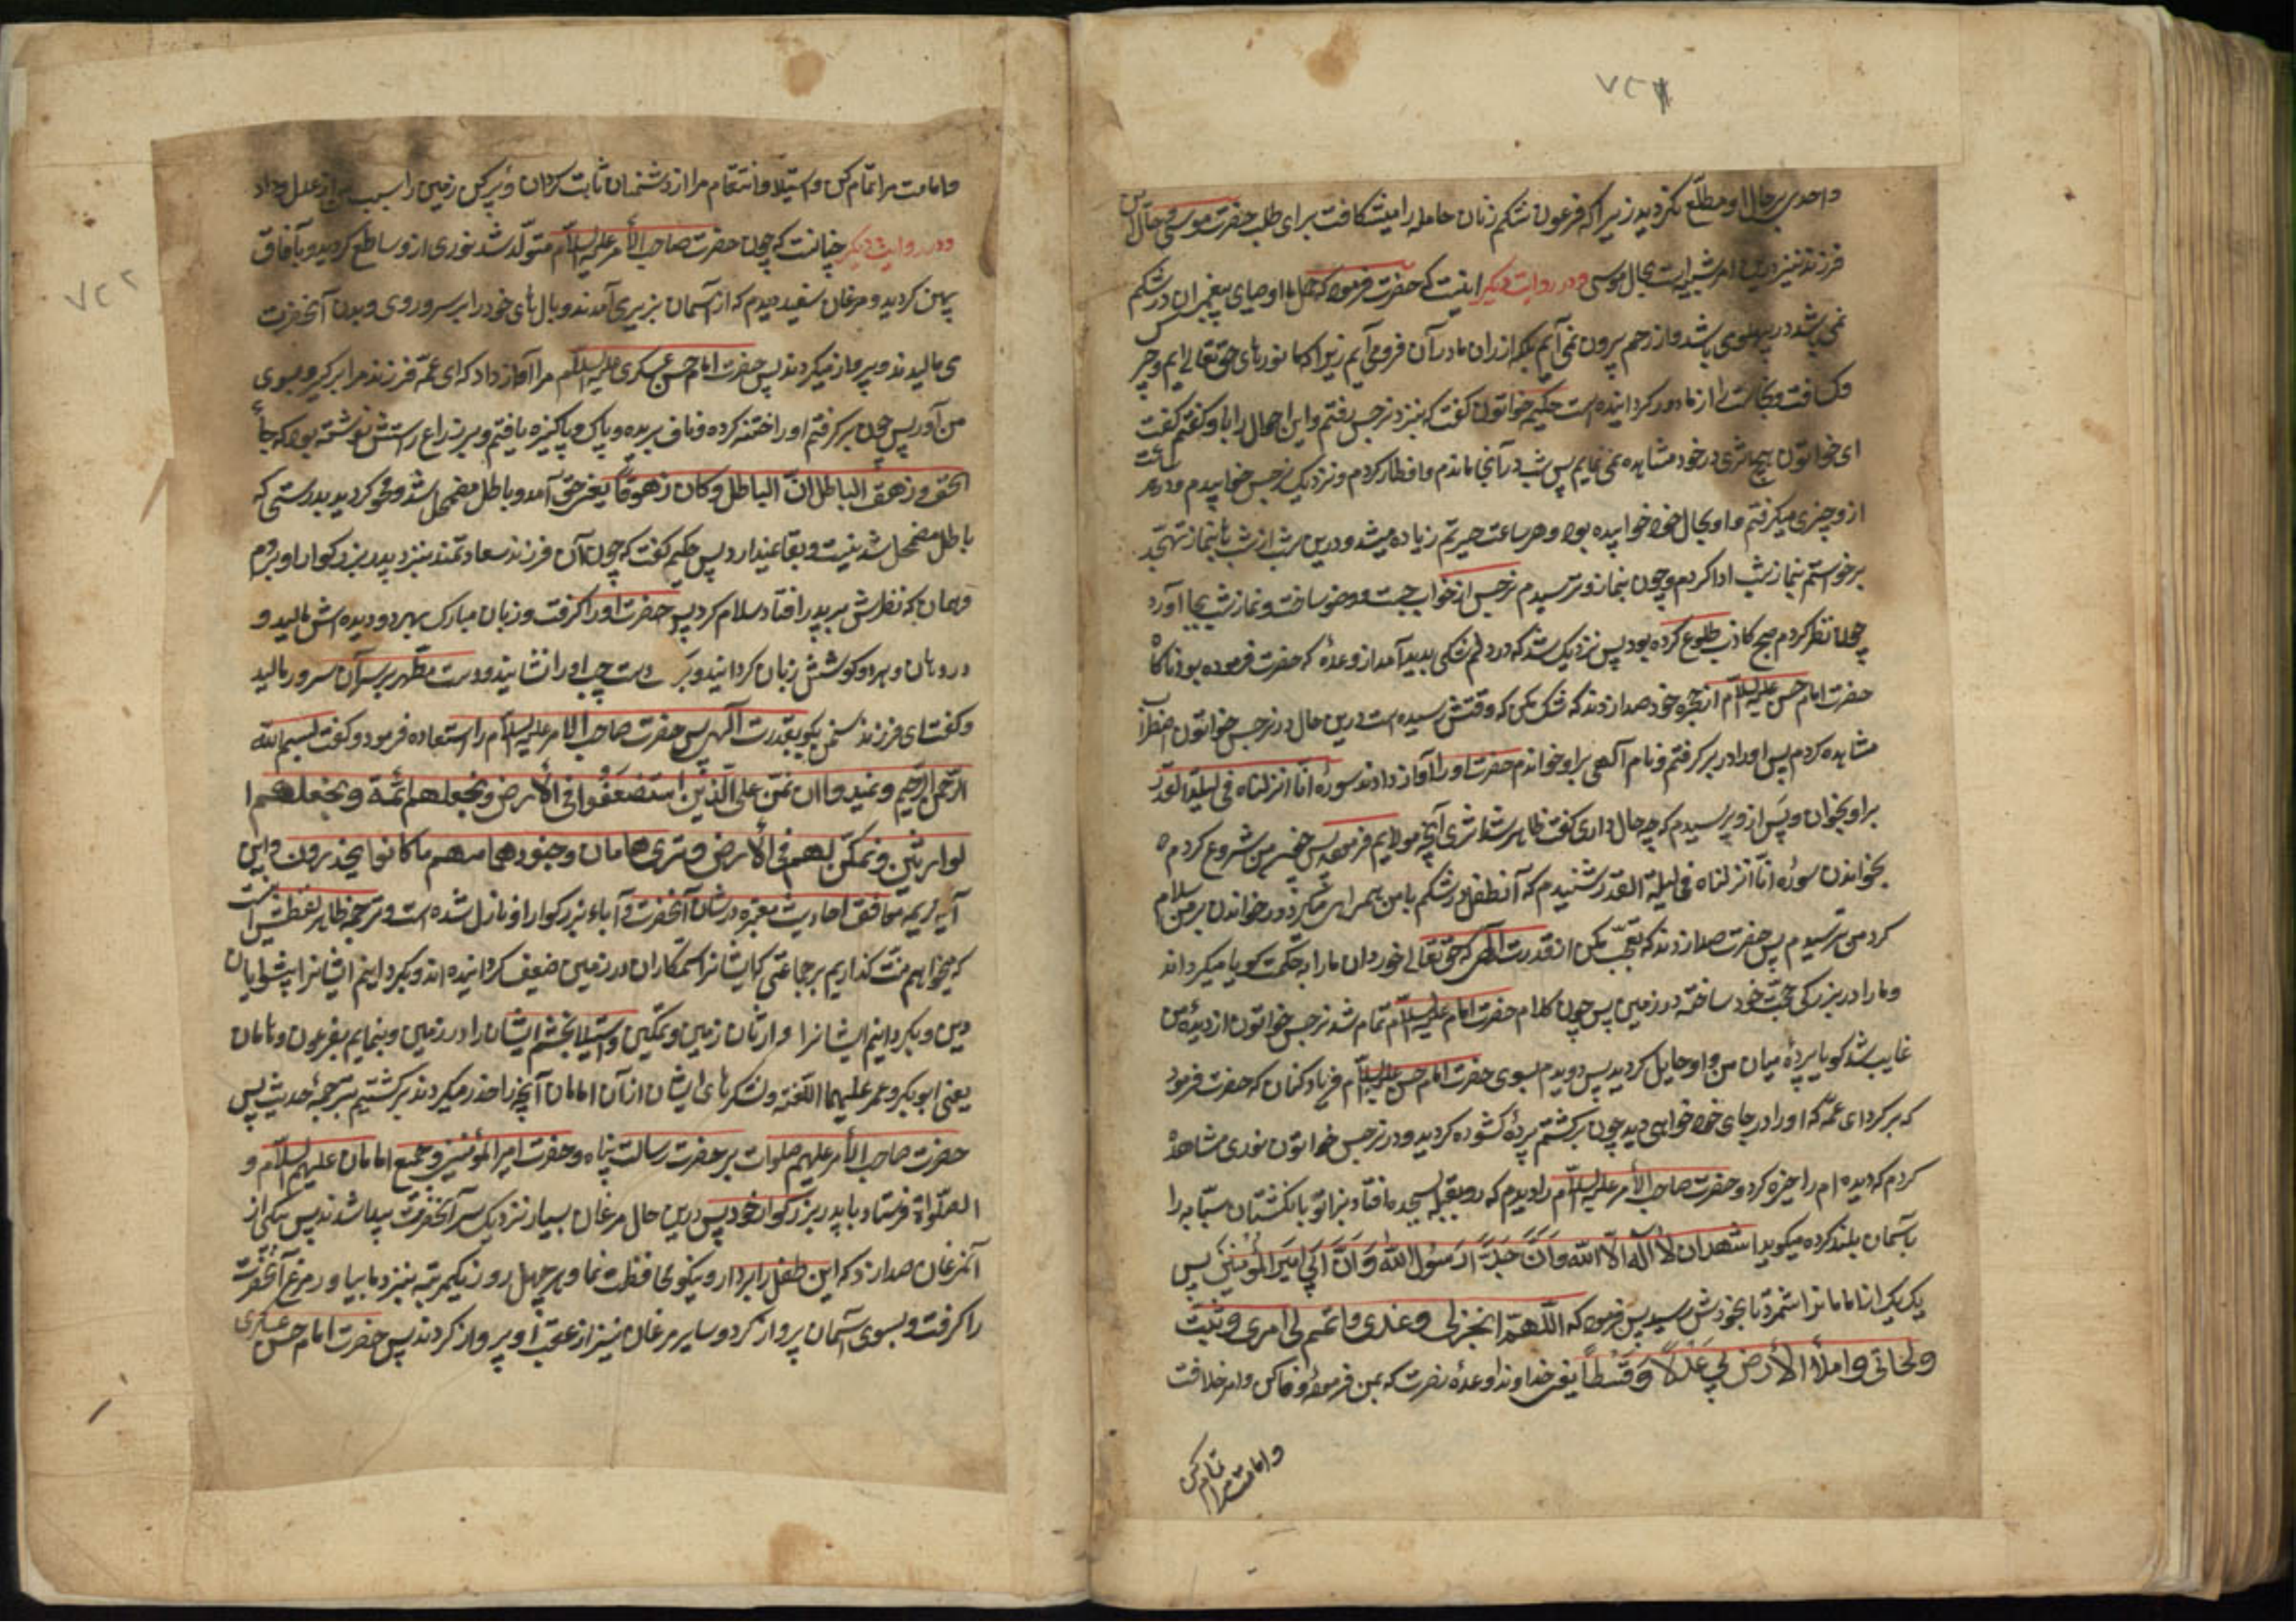 واحدی بر حال او مطلع نکردید زیرا که فرعون شکم زنان حامله را میشکافت برای طلب حضرت موسی و حال این
فرزند نیز درین امر شبیه است بحال موسی و در روایت دیکر اینست که حضرت فرمود که حمل ما اوصیای پیغمبران در شکم
نمی باشد در پهلو می باشد و از رحم بیرون نمی آییم بلکه از ران مادران فرو می آییم زیرا که ما نورهای حق تعالی ایم و چرک
و کثافت و نجاست را از ما دور کردانیده است حکیمه خواتون کفت که بنزد نرجس رفتم و این احوال را باو کفتم کفت
ای خواتون هیچ اثری در خود مشاهده نمی نمایم پس شب در آنجا ماندم و افطار کردم و نزدیک نرجس خوابیدم و در هر ساعت
از و خبری میکرفتم و او بحال خود خوابیده بود و هر ساعت حیرتم زیاده میشد و درین شب از شب با نماز تهجد
برخواستم نماز شب ادا کردم و چون بنماز وتر رسیدم نرجس از خواب جست و وضو ساخت و نماز شب بجا آورد
چون نظر کردم صبح کاذب طلوع کرده بود پس نزدیک شد که در دلم شکی بدید آمد از وعده که حضرت فرموده بود ناکاه
حضرت امام حسن علیه السلام از حجره خود صدا زدند که شک مکن که وقتش رسیده است درین حال در نرجس خواتون اضطراب
مشاهده کردم پس او را در بر کرفتم و نام آلهی بر او خواندم حضرت او را آواز دادند سوره انا انزلناه فی لیلة القدر
بر او بخوان و پس از و پرسیدم که چه حال داری کفت ظاهر شد اثری آنچه مولایم فرموده پس من شروع کردم
بخواندن سوره انا انزلناه فی لیلة القدر شنیدم که آنطفل در شکم با من همراهی میکرد در خواندن بر من سلام
کرد من ترسیدم پس حضرت صدا زدند که تعجب مکن از قدرت آلهی که حق تعالی خوردان ما را به حکمت کویا میکرداند
و ما را در بزرکی حجت خود ساخته در زمین پس چون کلام حضرت امام علیه السلام تمام شد نرجس خواتون از دیده من
غایب شد کویا پردۀ میان من و او حایل کردید پس دویدم بسوی حضرت امام حسن علیه السلام فریاد کنان که حضرت فرمود
که برکرد ای عمه که او را در جای خود خواهی دید چون برکشتم پرده کشوده کردید و در نرجس خواتون نوری مشاهده
کردم که دیده ام را خیره کرد و حضرت صاحب الأمر علیه السلام را دیدم که رو بقبله بسجده افتاد بزانو با نکشتان سبابه را
بآسمان بلند کرده میکوید اشهد ان لا آله الا الله وان جدی رسول الله وان ابی امیر المؤمنین پس
یک یک از امامان را شمرد تا بخودش رسید پس فرمود که اللهم انجزلی وعدی واتمم لی امری وثبت
وطاتی واملأ الأرض بی عدلا وقسطا یعنی خداوندا وعده نصرت که بمن فرمودۀ وفا کن و امر خلافت
و امامت مرا تمام کن
و امامت مرا تمام کن و استیلا و انتقام مرا از دشمنان ثابت کردان و پر کن زمین را بسبب من از عدل و داد
و در روایت دیکر چنانست که چون حضرت صاحب الأمر علیه السلام متولد شد نوری از و ساطع کردید و بآفاق
پهن کردید و مرغان سفید دیدم که از آسمان بزیر می آمدند و بالهای خود را بر سر و روی و بدن آنحضرت
می مالیدند و پرواز میکردند پس حضرت امام حسن عسکری علیه السلام مرا آواز داد که ای عمه فرزند مرا برکیر و بسوی
من آور پس چون برکرفتم او را ختنه کرده و ناف بریده و پاک و پاکیزه یافتم و بر ذراع راستش نوشته بود که جاء
الحق و زهق الباطل ان الباطل کان زهوقا یعنی حق آمد و باطل مضمحل شد و محو کردید بدرستی که
باطل مضمحل شدنیست و بقا نمیدارد پس حکیمه کفت که چون آن فرزند سعادتمند بنزد پدر بزرکوار او بردم
و همان که نظرش بر پدر افتاد سلام کرد پس حضرت او را کرفت و زبان مبارک بهر دو دیده اش مالید و
در دهان و هر دو کوشش زبان کردانید و بر دست چپ او را نشانید و دست مطهر بر سر آن سرور مالید
و کفت ای فرزند سخن بکو بقدرت آلهی پس حضرت صاحب الامر علیه السلام را استعاذه فرمود و کفت بسم الله
الرحمن الرحیم و نرید ان نمن علی الذین استضعفوا فی الأرض و نجعلهم ائمة و نجعلهم ا
لوارثین و نمکن لهم فی الأرض و نری هامان و جنودهما منهم ما کانوا یحذرون و این
آیه کریمه موافق احادیث معتبره در شان آنحضرت و آباء بزرکوار او نازل شده است و ترجمه ظاهر لفظش اینست
که میخواهیم منت کذاریم بر جماعتی که ایشانرا ستمکاران در زمین ضعیف کردانیده اند و بکردانیم ایشانرا پیشوایان
دین و بکردانیم ایشانرا وارثان زمین و تمکین و استیلا بخشیم ایشان را در زمین و بنماییم بفرعون و هامان
یعنی ابوبکر و عمر علیهما اللعنة و لشکرهای ایشان از آن امامان آنچه را حذر میکردند برکشتیم بترجمه حدیث پس
حضرت صاحب الأمر علیهم صلوات بر حضرت رسالت پناه و حضرت امیر المؤمنین و جمیع امامان علیهم السلام و
الصلواة فرستاد با پدر بزرکوار خود پس درین حال مرغان بسیار نزدیک سر آنحضرت پیدا شدند پس یکی از
آنمرغان صدا زد که این طفل را بردار و نیکو محافظت نما و هر چهل روز یکمرتبه بنزد ما بیاور مرغ آنحضرت
را کرفت و بسوی آسمان پرواز کرد و سایر مرغان نیز از عقب او پرواز کردند پس حضرت امام حسن عسکری